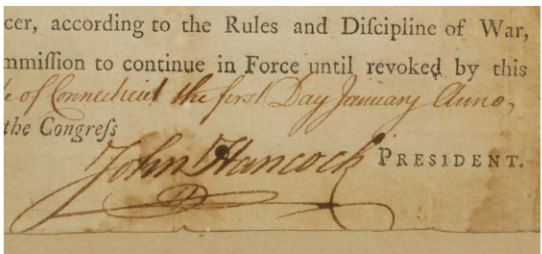 cer, according to the Rules and Diſcipline of War,
mmiſſion to continue in Force until revoked by this
of Connecticut the first Day January Anno,
the Congreſs
John Hancock PRESIDENT.